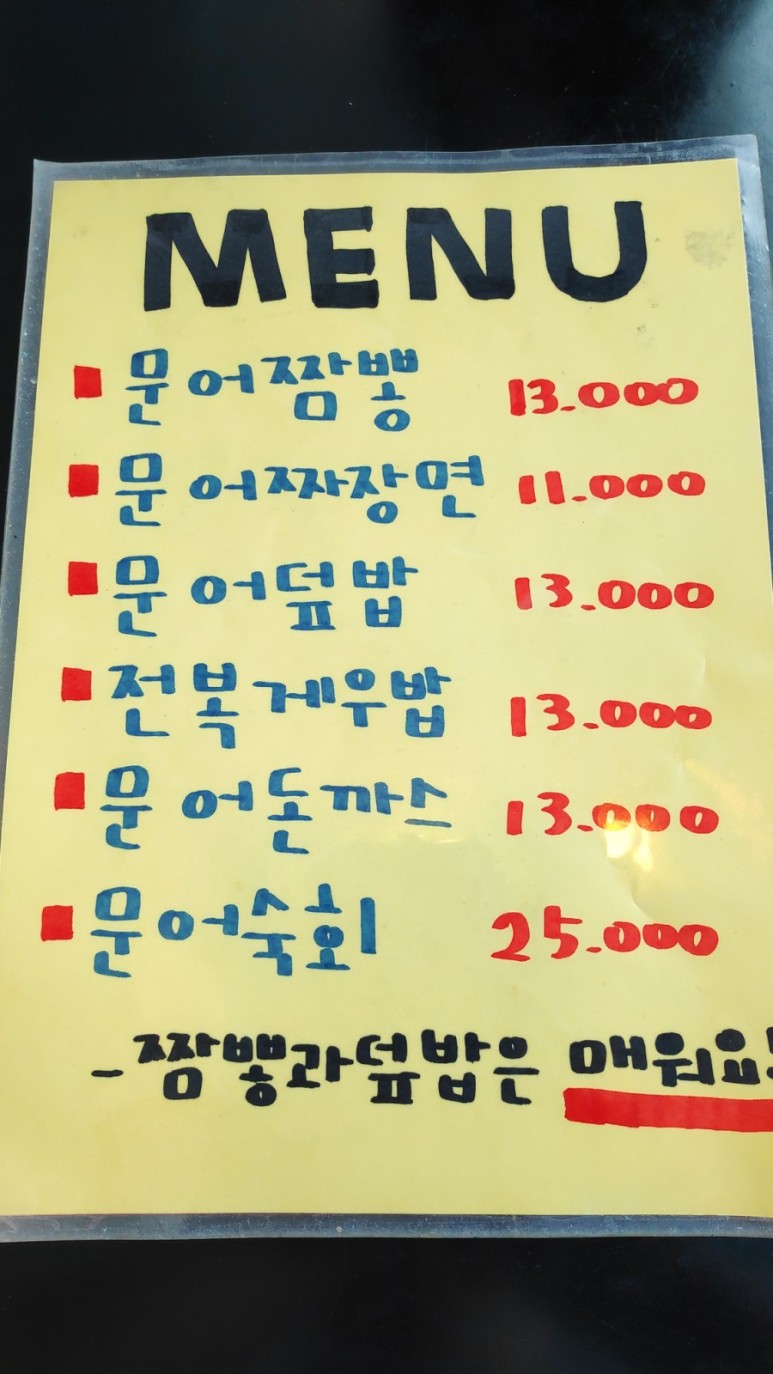 MENU
문어짬뽕 13.000
문어짜장면 11.000
문어덮밥 13.000
전복게우밥 13.000
문어돈까스 13.000
문어숙회 25.000
-짬뽕과덮밥은 매워요!